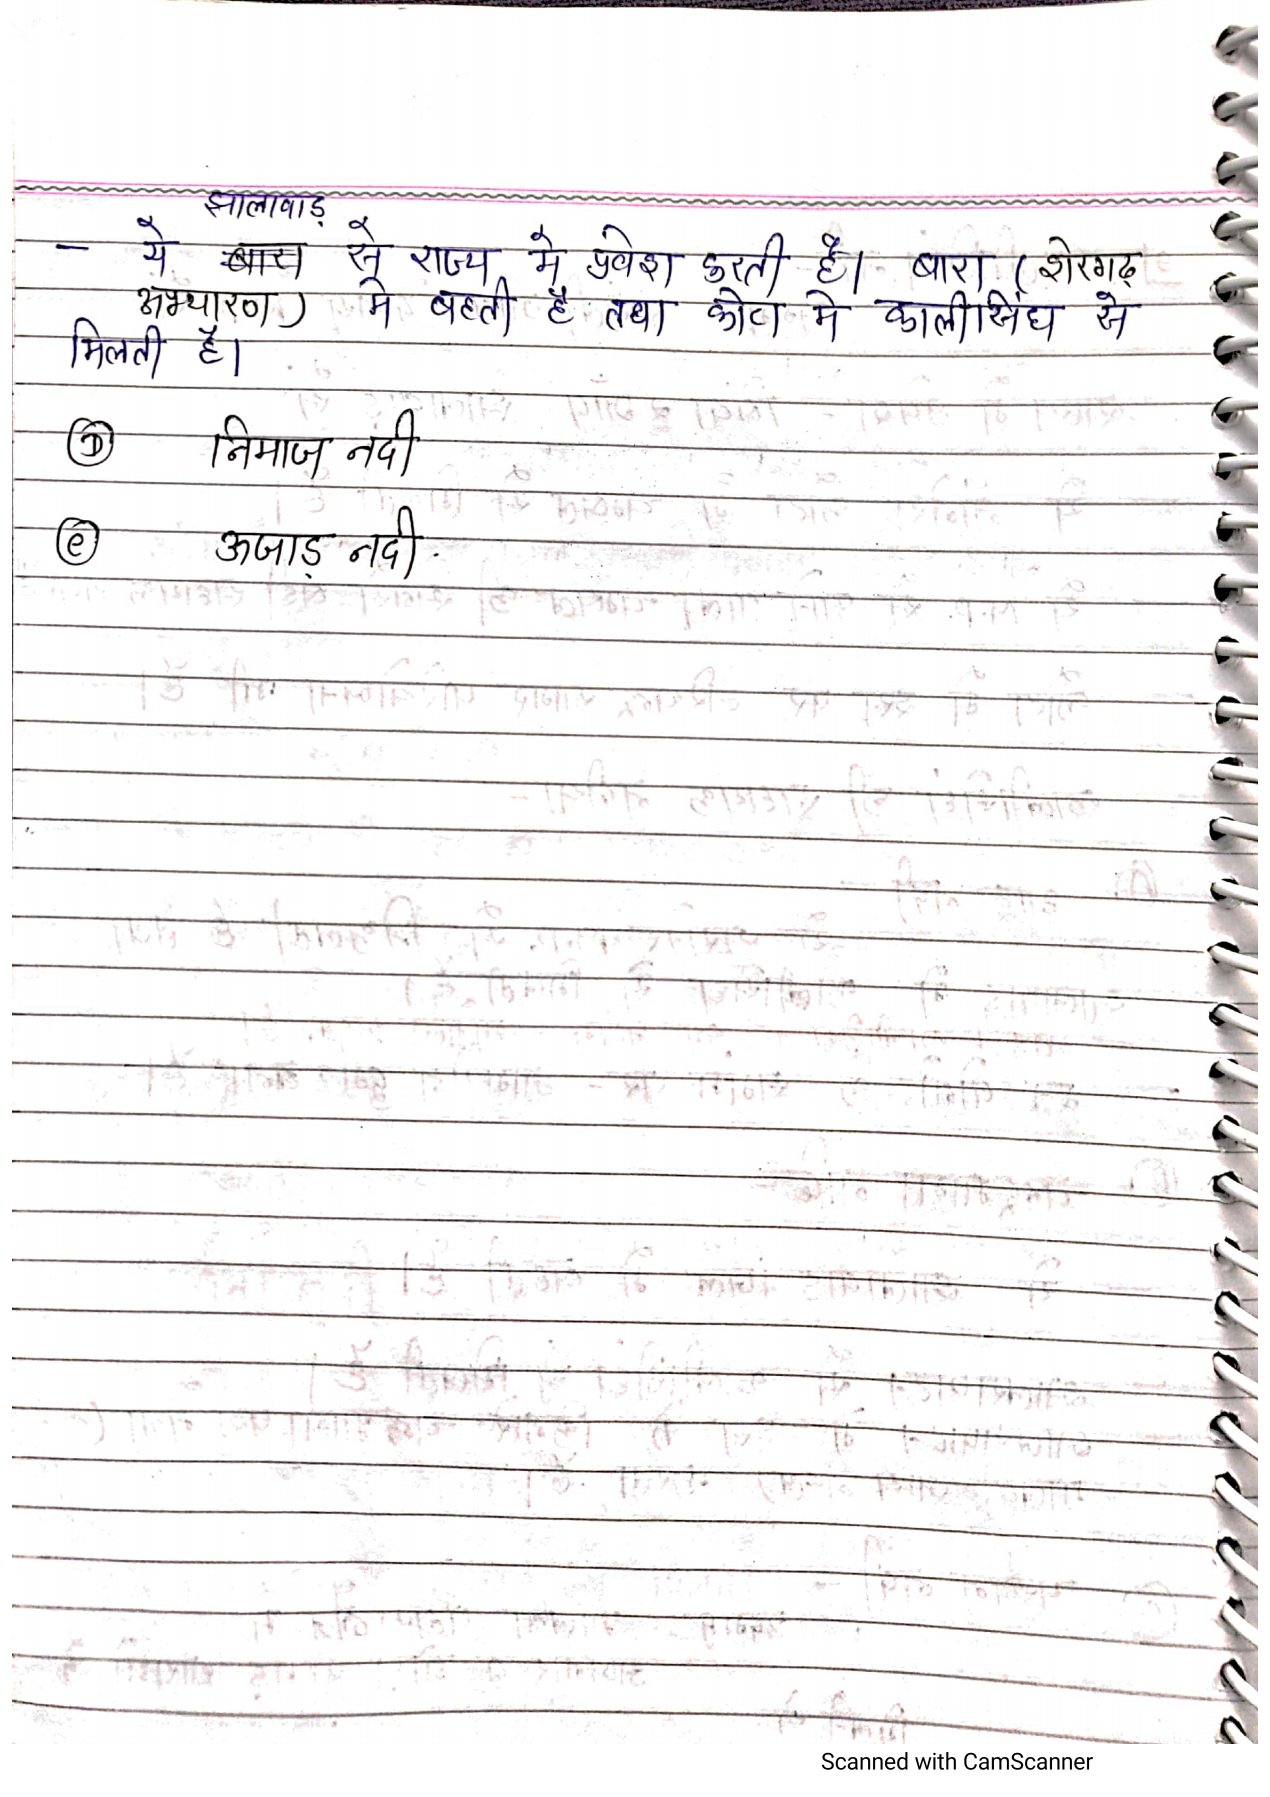 झालावाड़
- ये बारा से राज्य मे प्रवेश करती है। बारा (शेरगढ़
अभ्यारण) मे बहती है तथा कोटा मे कालीसिंध से
मिलती है।
(D) निमाज नदी
(e) ऊजाड़ नदी.
Scanned with CamScanner